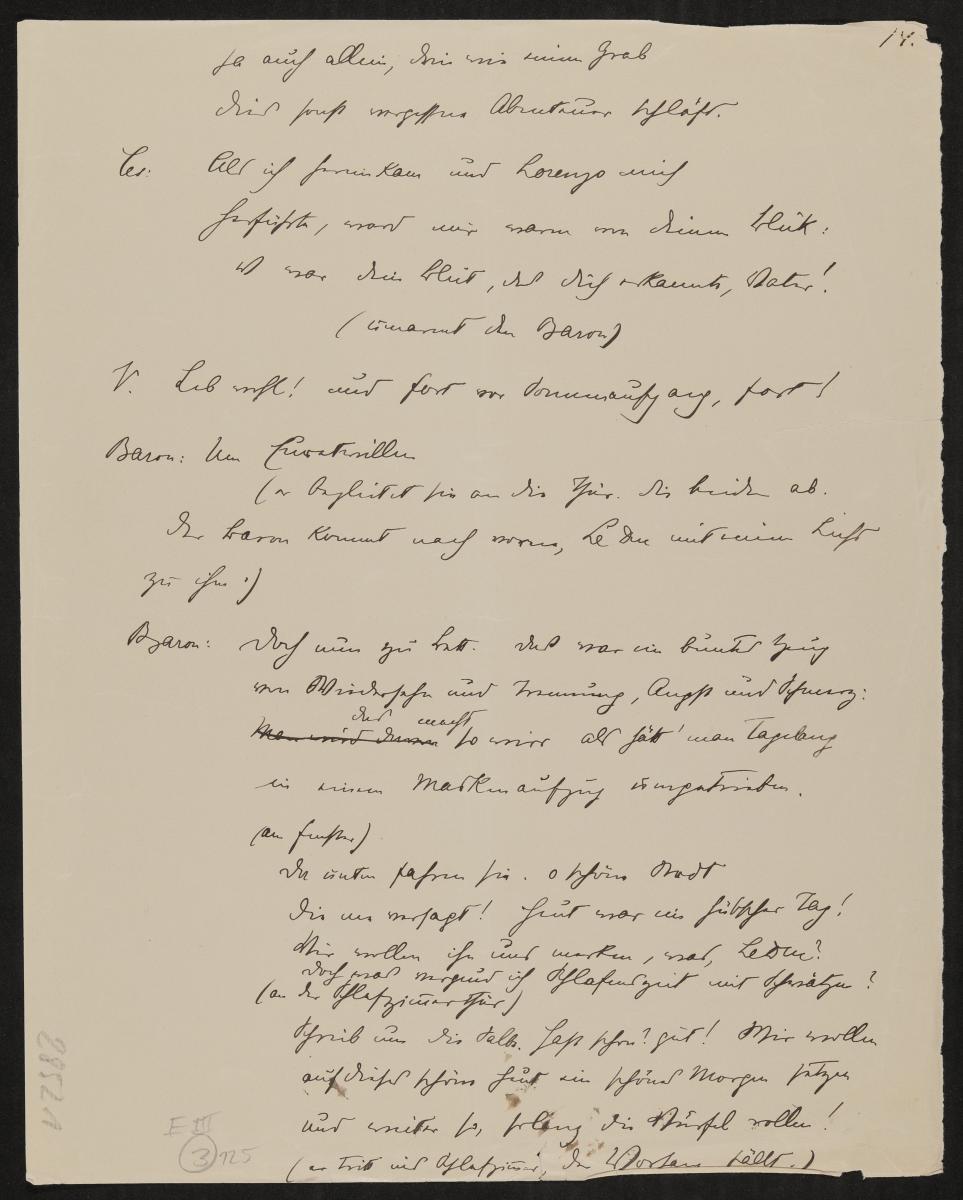 14.
ja auch allein, drin wie einem Grab
dies sonst vergessne Abenteuer schläft.
Ces: Als ich hereinkam und Lorenzo mich
herführte, ward mir warm von deinem Blick:
es war dein Blut, das dich erkannte, Vater!
(umarmt den Baron)
V. Leb wohl! und fort vor Sonnenaufgang, fort!
Baron: Um Euretwillen
(er begleitet sie an die Thür. die beiden ab.
der Baron kommt nach vorne, Le Duc mit einem Licht
zu ihm.)
Baron: Doch nun zu Bett. das war ein bunter Zug
von Wiedersehn und Trennung, Angst und Schmerz:
das macht
Man wird davon so wirr als hätt' man Tagelang
in einem Maskenaufzug umgetrieben.
(am Fenster)
Da unten fahren sie. o schöne Stadt
die uns versagt! Heut war ein hübscher Tag!
Wir wollen ihn uns merken, was, Le Duc?
Doch was vergeud ich Schlafenszeit mit Schwätzen?
(an der Schlafzimmerthür)
Schreib um die Salbe. Hast schon? gut! Wir wollen
auf dieses schöne Heut ein schönes Morgen setzen
und weiter so, solang die Würfel rollen!
(er tritt ins Schlafzimmer, der Vorhang fällt.)
E III
3 125
28521